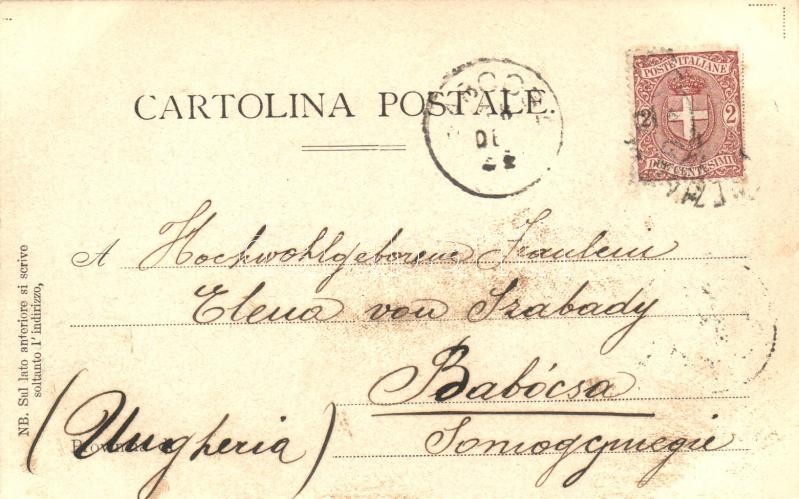 CARTOLINA POSTALE
POSTE ITALIANE
2 2
DUE CENTESIMI
A Hochwohlgeborene Fraulein
Elena von Szabady
Babócsa
Somogymegie
(Ungheria)
NB. Sul lato anteriore si scrive
soltanto l'indirizzo,